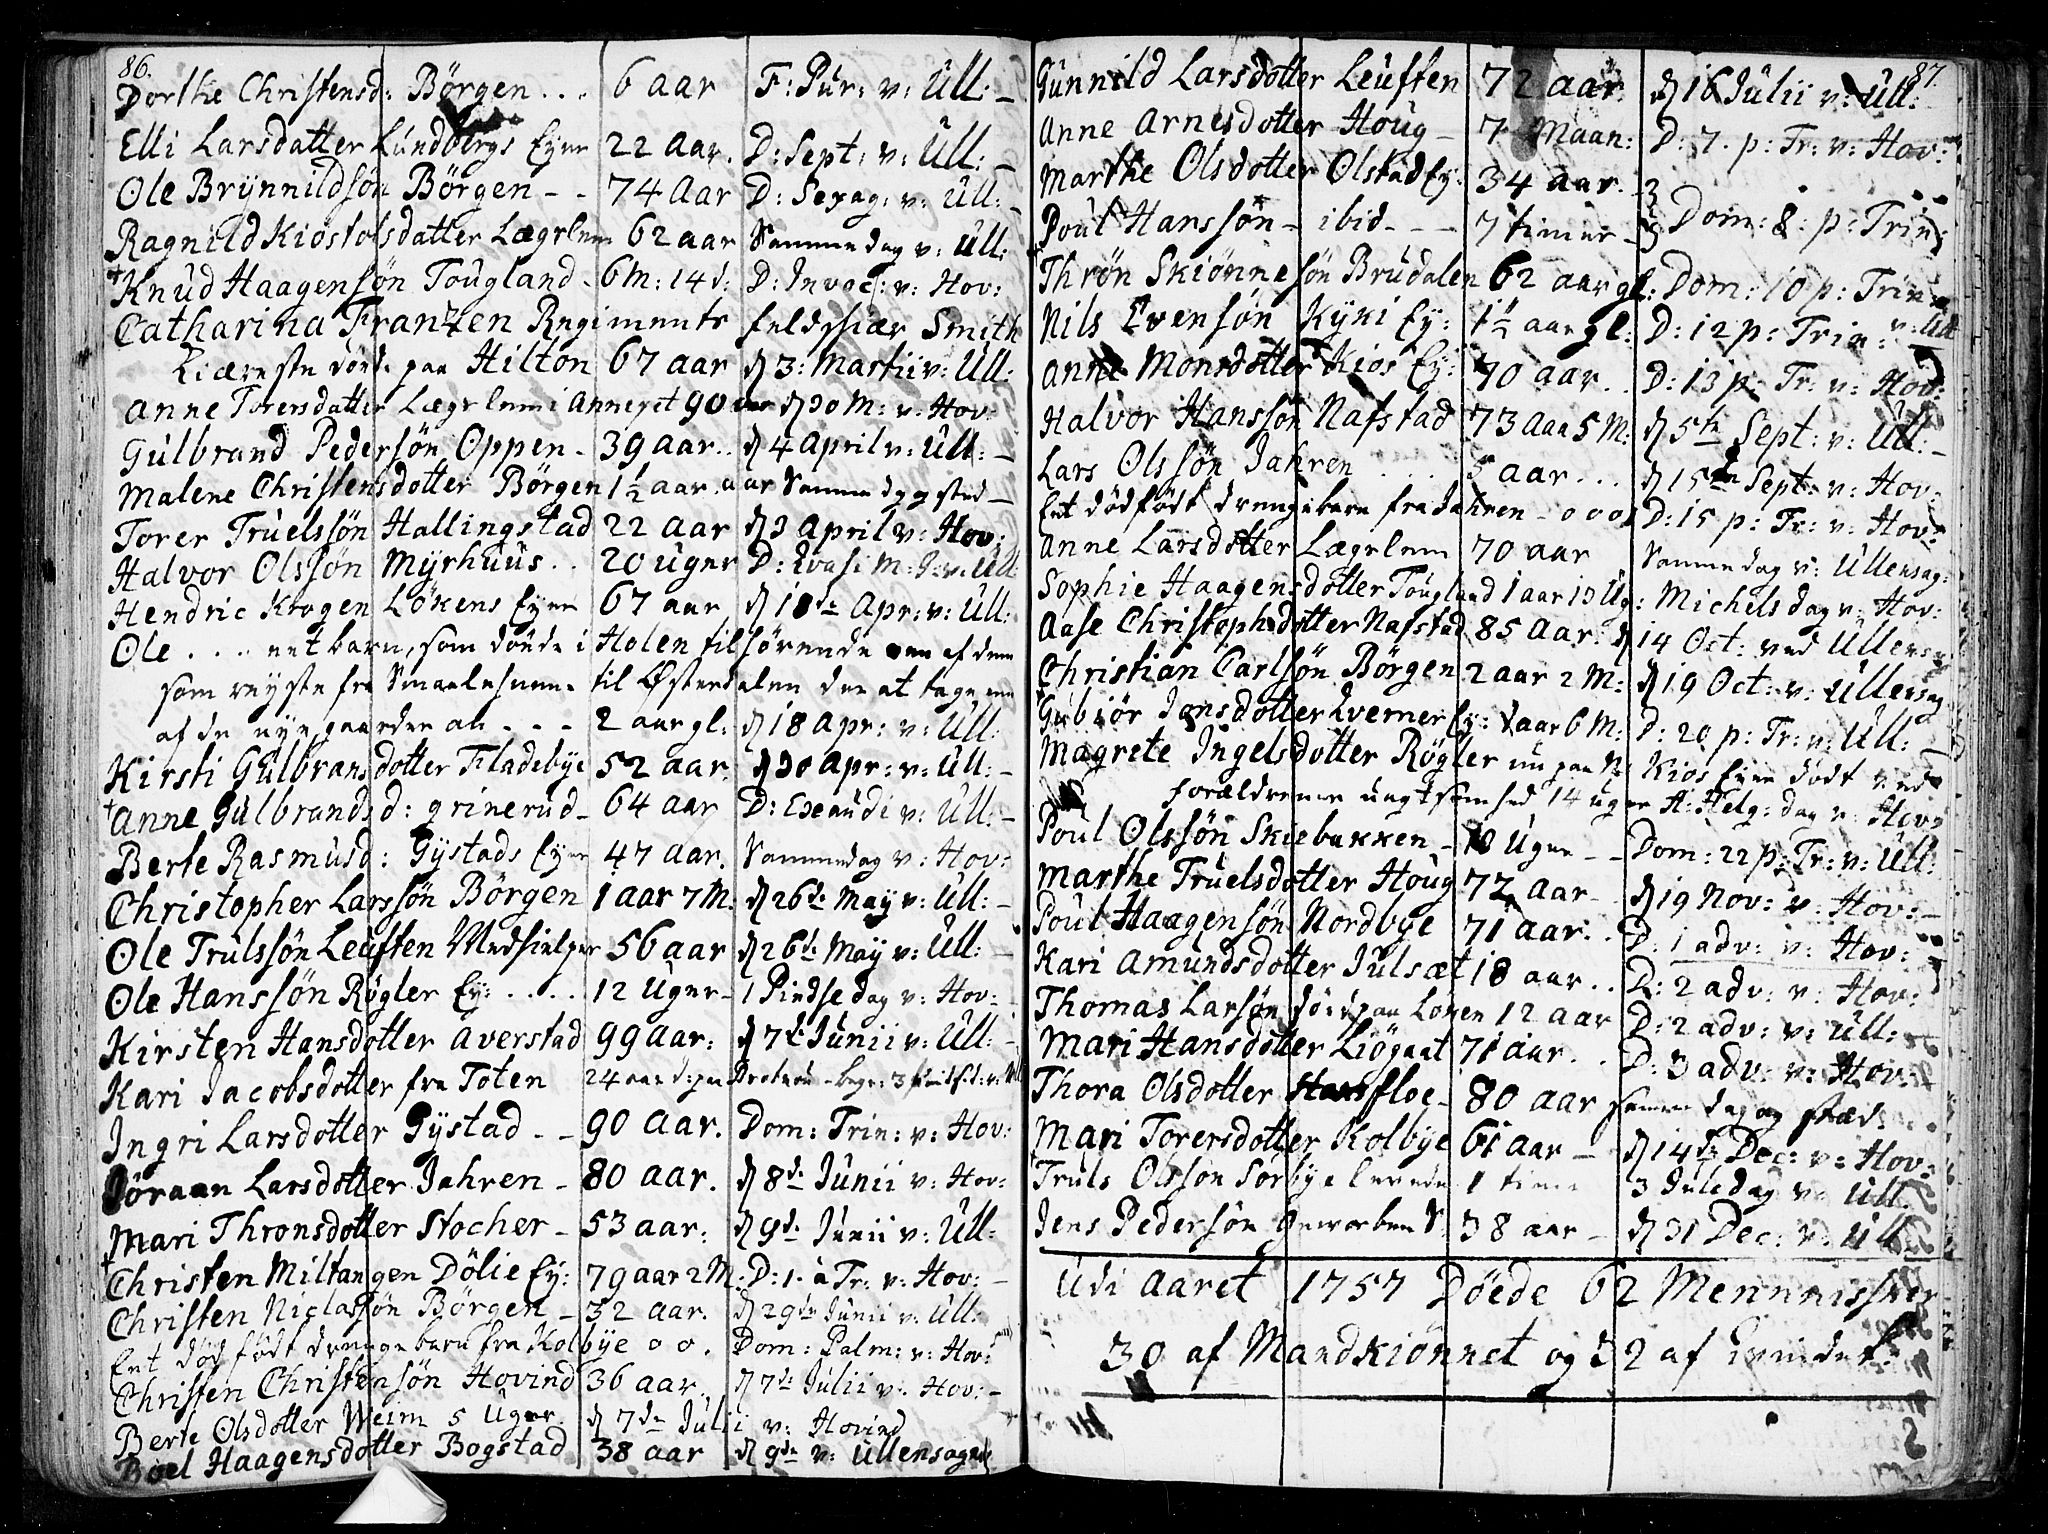 86.
Dorthe Christensd: Börgen . . . 6 aar F: Pur: v: Ull: –
Elli Larsdatter Lundbergs Eyer 22 Aar. D: Sept: v: Ull: –
Ole Brynnildsön Börgen – – 74 Aar D: Sexag: v: Ull: –
Ragnild Kiostolsdatter Lægrlem 62 aar Samme dag v: Ull:
† Knud Haagensön Tougland – 6 M: 14 d: D: Invoc: v: Hov:
Catharina Franzen Regiments feldskiær Smith
Kiæreste döde paa Hilton 67 aar d 3: Martii v: Ull:
Anne Torersdatter Lægrlem i Anneget 90 aar d 30 M: v: Hov:
Gulbrand Pedersön Oppen – 39 aar. . d 4 April v: Ull: –
Malene Christensdotter Börgen 1½ aar. Samme dag og sted –
Torer Truelssön Hallingstad 22 aar d 3 April v: Hov:
Halvor Olssön Myrhuus . . 20 uger D: Qvasi M: G: v: Ull
Hendric Krogen Lökens Eyer 67 aar d 18de Apr: v: Ull:
Ole . . . eet barn, som döde i Holen tilhörende een af dem
som reyste fra Smaalehnene til Østerdalen der at tage een
af de nye gaarder an – – – 2 aar gl: d 18 Apr: v: Ull:
Kirsti Gulbransdotter Fladebye 52 aar. d 30 Apr: v: Ull: –
† Anne Gulbrandsd: grinerud – 64 aar D: Exaudi v: Ull: –
Berte Rasmusd: Gystads Eyer 47 aar. Sammedag v: Hov:
Christopher Larssön Börgen 1 aar 7 M: d 26de May v: Ull: –
Ole Trulssön Leuften Medhielper 56 aar d 26de May v: Ull: –
Ole Hanssön Rögler Ey: . . . . 12 Uger – 1 Pindse dag v: Hov: –
Kirsten Hansdotter Averstad 99 aar: d 7de Junii v: Ull: –
Kari Jacobsdotter fra Toten 24 aar d: paa begr: 3 Pintsed: v: Ull
Ingri Larsdotter Gystad – – 90 Aar. Dom: Trin: v: Hov:
Jöraan Larsdotter Jahren – 80 aar. d 8de Junii v: Hov:
Mari Thronsdotter Stocher – 53 aar: d 9de Junii v: Ull:
† Christen Miltangen Dölie Ey: 79 aar 2 M: D: 1. à Tr: v: Hov: –
Christen Niclassön Börgen – 32 aar. d 29de Junii v: Ull:
Eet död födt drengebarn fra Kolbye o o . Dom: Palm: v: Hov:
Christen Christensön Hovind 36 aar. d 7de Julii v: Hov: –
Berte Olsdotter Weim 5 Uger. d 7de Julii v: Hovind
Boel Haagensdotter Bogstad 38 aar d 9de v: Ullensager
87.
Gunnild Larsdotter Leuften 72 aar. d 16 Julii v: Ull:
Anne Arnesdotter Houg – 7 Maan: D: 7. p: Tr: v: Hov:
Marthe Olsdotter Olstad Ey: 34 aar. –
Poul Hanssön – ibid – – – 7 timer – Dom: 8: p: Trin:
† Thrön Skiönnesön Brudalen 62 aar gl: Dom: 10 p: Trin
Nils Evensön Kyki Ey: 1½ aar gl: D: 12 p: Trin: v: Ull
Anne Monsdotter Kios Ey: 70 aar . . D: 13 p: Tr: v: Hov:
Halvor Hanssön Nafstad 73 Aar 5 M: d 5te Sept: v: Ull: –
Lars Olssön Jahren . . . 5 aar . . . d 15de Sept: v: Hov:
Eet dödfödt drengebarn fra Jahren – o o o D: 15 p: Tr: v: Hov:
Anne Larsdotter Lægrlem 70 aar Samme dag v: Ullensag:
Sophie Haagensdotter Tougland 1 aar 13 Ug: Michels dag v: Hov:
Aase Christophsdotter Nafstad 85 Aar. d 14 Oct: ved Ullens
Christian Carlsön Börgen 2 aar 2 M: d 19 Oct: v: Ullensag
† Gubiör Jonsdotter Qverner Ey: 1 aar 6 M: D: 20 p: Tr: v: Ull: –
Magrete Ingelsdotter Rögler nu paa N: Kios Eyer dödt ved
forældrenes uagtsomhed 14 uger A: Helg: dag v: Hov:
Poul Olssön Skiebakken – 10 Uger – – Dom: 22 p: Tr: v: Ull:
Marthe Truelsdotter Houg 72 aar – d 19 Nov: v: Hov: –
Poul Haagensön Nordbye 71 aar. . D: 1 adv: v: Hov:
Kari Amundsdotter Julsæt 18 aar . . D: 2 adv: v: Hov:
Thomas Larsön död paa Loken 12 aar D: 2 adv: v: Ull: –
Mari Hansdotter Liögaat 71 aar. . D: 3 adv: v: Hov:
Thora Olsdotter Hansfloe – 80 aar samme dag og stæd.
Mari Torersdotter Kolbye 61 aar – d 14de Dec: v: Hov:
† Truls Olsson Sorbye levede 1 time 3 Juledag v: Ull
Jens Pedersön Geworben S. 38 aar – d 31 Dec: v: Ull
Udi Aaret 1757 Döede 62 Mennisker
30 af Mandkiönnet og 32 af Qvindek: